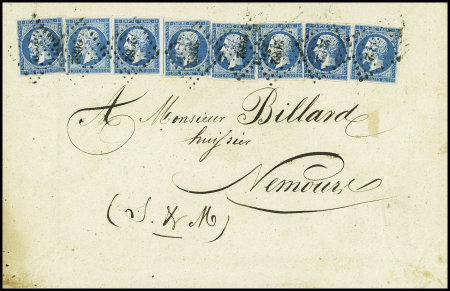 A Monsieur Billard
huissier
Nemours
(S. & M)